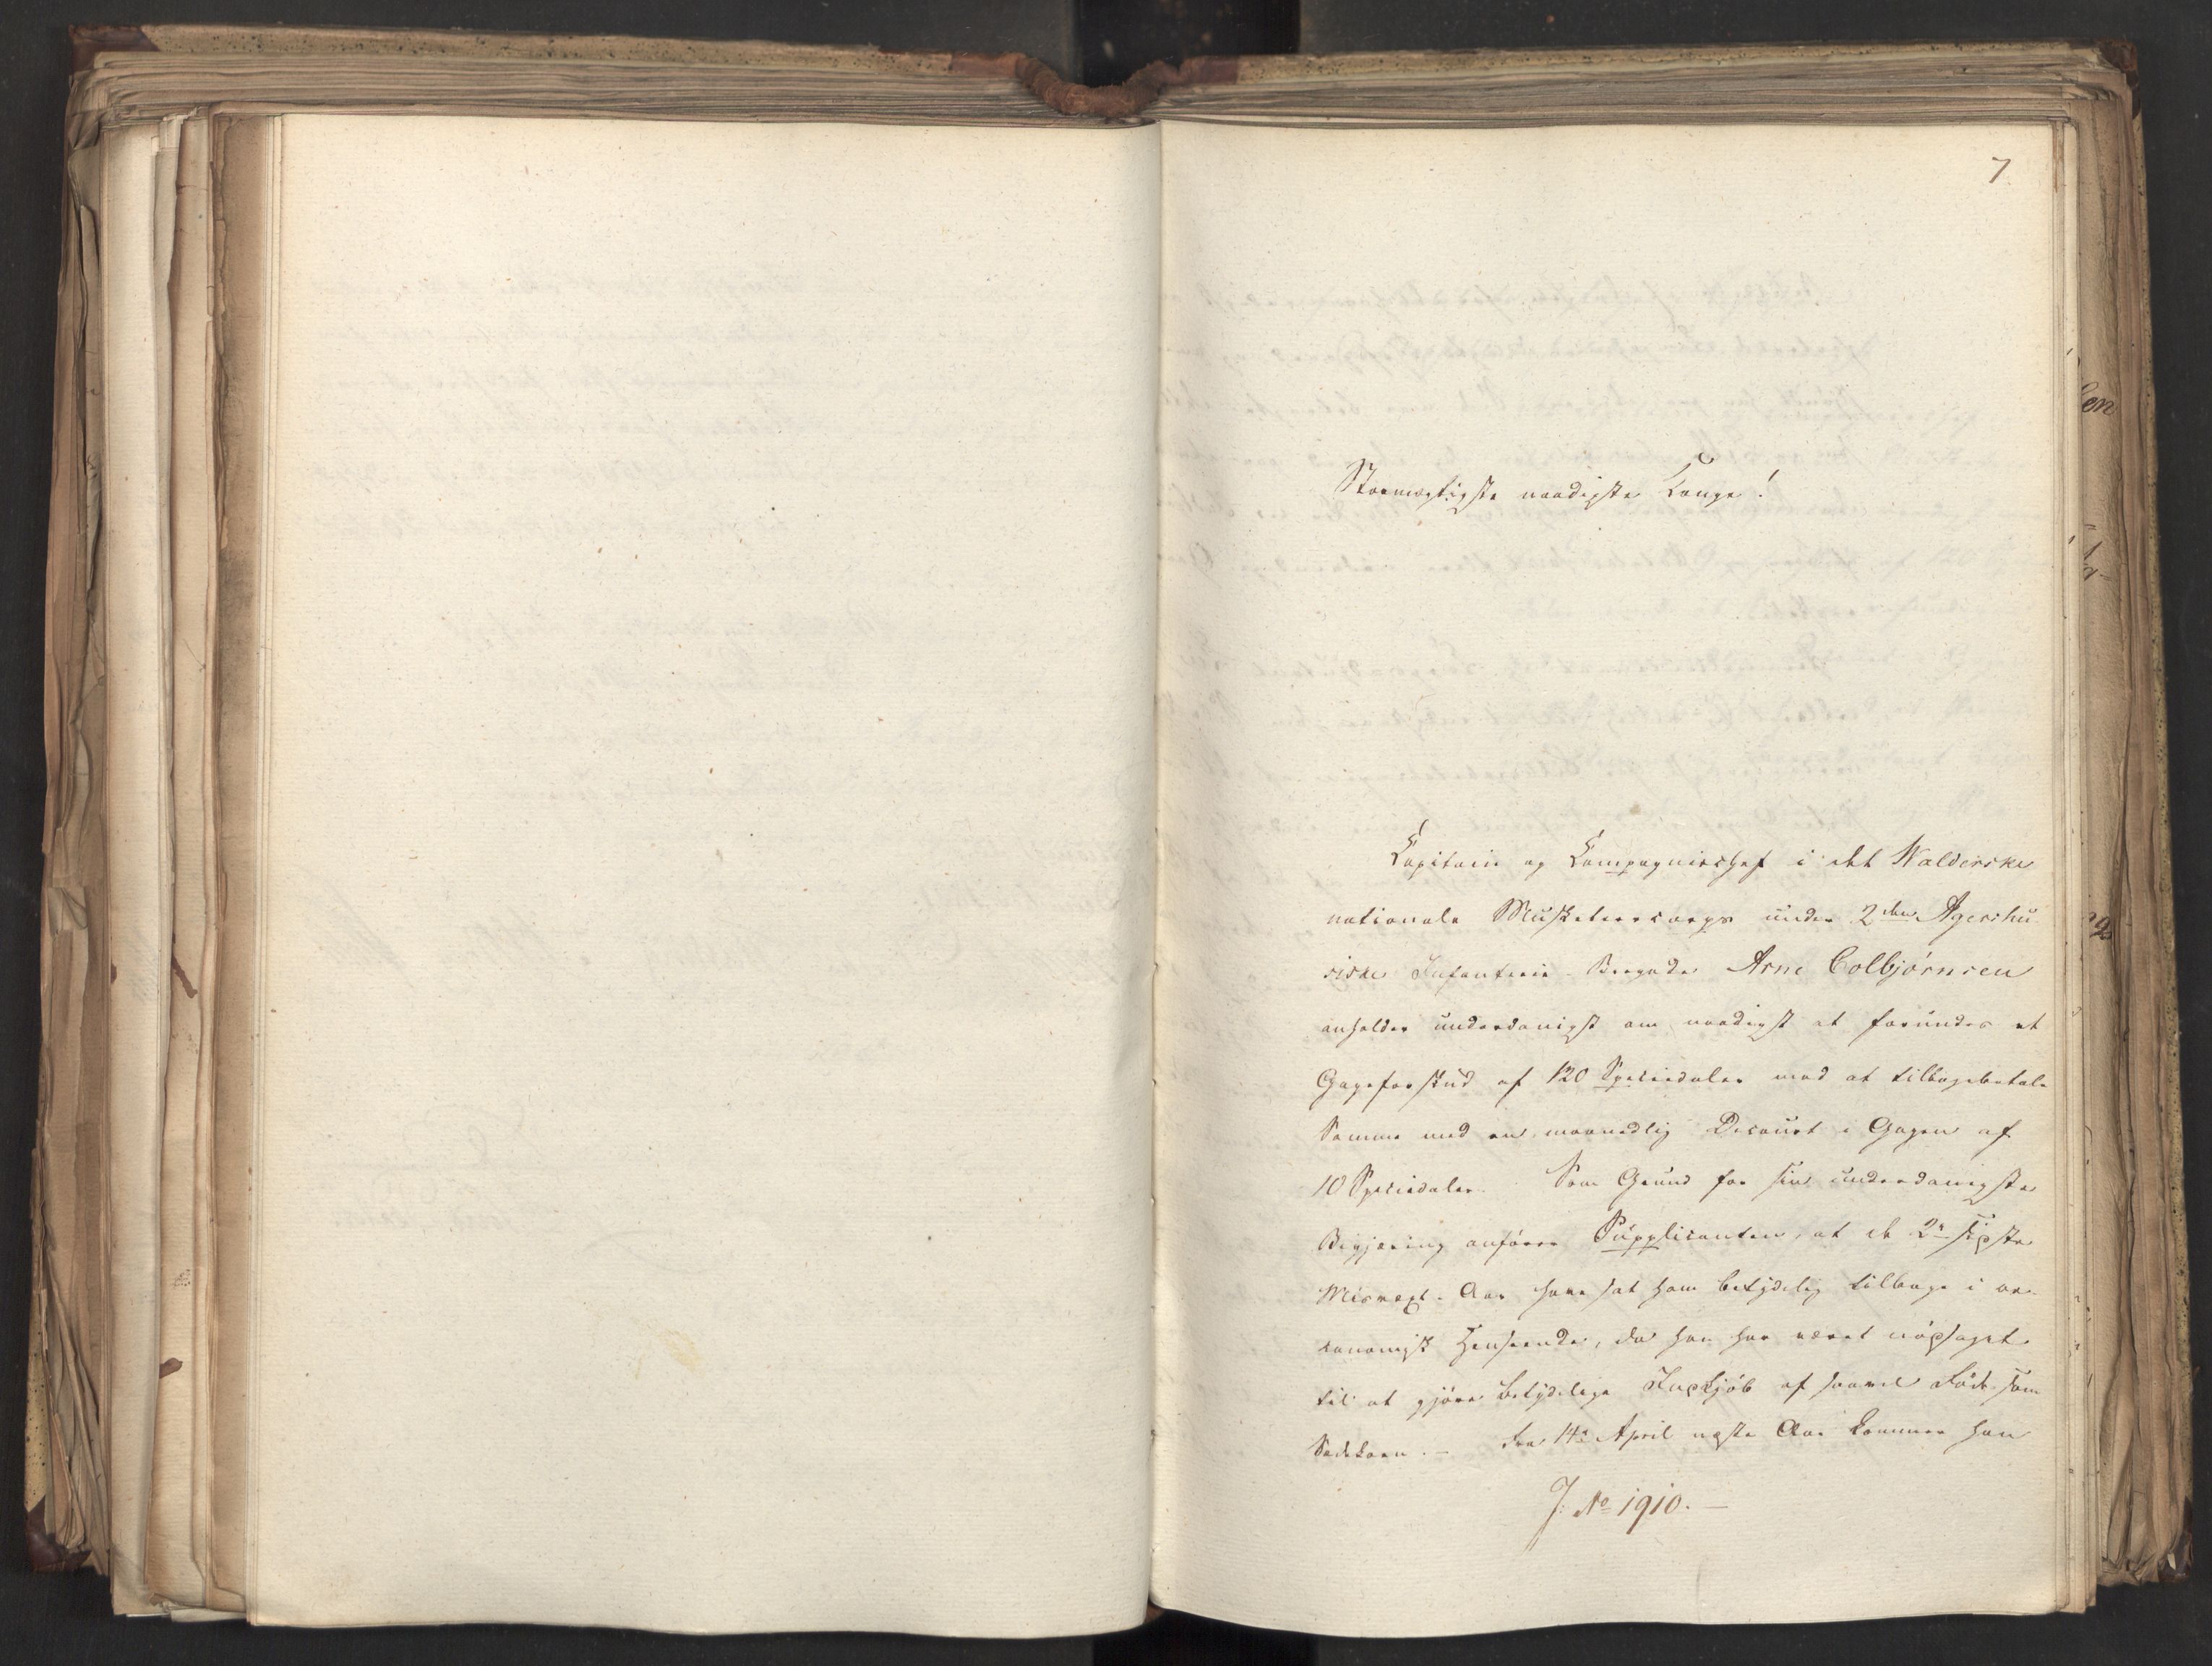 7
Stormægtigste naadigste Konge!
Capitain og Compagniechef i det Walderske
nationale Musketeercorps under 2den Agershu
siske Infanterie-Brigade Arne Colbjørnsen
anholder underdanigst om naadigst at forundes et
Gageforskud af 120 Speciedaler mod at tilbagebetale
Samme med en maanedlig Decourt i Gagen af
10 Speciedaler. Som Grund for sin underdanigste
Begjæring anfører Supplicanten, at de 2de sidste
Misvæxt-Aar have sat ham betydelig tilbage i oe-
conomisk Henseende, da han har været nødsaget
til at gjøre betydelige Indkjøb af saavel Føde- som
Sædekorn. – Fra 14de April næste Aar kommer han
J: No 1910. –